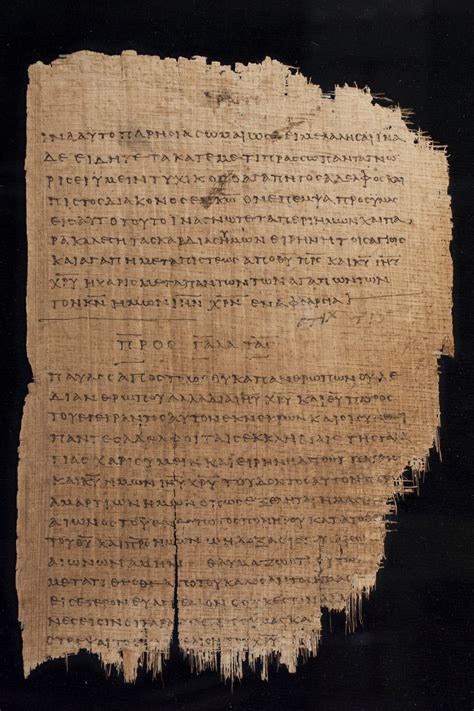 ΙΝΑ ΑΥΤΟ ΠΑΡΗΣΙΑΣΩΜΑΙ ΩΣ ΔΕΙ ΜΕ ΛΑΛΗΣΑΙ ΙΝΑ
ΔΕ ΕΙΔΗΤΕ ΤΑ ΚΑΤ ΕΜΕ ΤΙ ΠΡΑΣΣΩ ΠΑΝΤΑ ΓΝΩ
ΡΙΣΕΙ ΥΜΕΙΝ ΤΥΧΙΚΟΣ Ο ΑΓΑΠΗΤΟΣ ΑΔΕΛΦΟΣ ΚΑΙ
ΠΙΣΤΟΣ ΔΙΑΚΟΝΟΣ ΕΝ Κ̅Ω̅ ΟΝ ΕΠΕΜΨΑ ΠΡΟΣ ΥΜΑΣ
ΕΙΣ ΑΥΤΟ ΤΟΥΤΟ ΙΝΑ ΓΝΩΤΕ ΤΑ ΠΕΡΙ ΗΜΩΝ ΚΑΙ ΠΑ
ΡΑΚΑΛΕΣΗ ΤΑΣ ΚΑΡΔΙΑΣ ΥΜΩΝ ΕΙΡΗΝΗ ΤΟΙΣ ΑΓΙΟΙΣ
ΚΑΙ ΑΓΑΠΗ ΜΕΤΑ ΠΙΣΤΕΩΣ ΑΠΟ Θ̅Υ̅ Π̅Ρ̅Σ̅ ΚΑΙ Κ̅Υ̅ Ι̅Η̅Υ̅
Χ̅Ρ̅Υ̅ Η ΧΑΡΙΣ ΜΕΤΑ ΠΑΝΤΩΝ ΤΩΝ ΑΓΑΠΩΝΤΩΝ
ΤΟΝ Κ̅Ν̅ ΗΜΩΝ Ι̅Η̅Ν̅ Χ̅Ρ̅Ν̅ ΕΝ ΑΦΘΑΡΣΙΑ
ΠΡΟΣ ΓΑΛΑΤΑΣ
ΠΑΥΛΟΣ ΑΠΟΣΤΟΛΟΣ ΟΥΚ ΑΠ ΑΝΘΡΩΠΩΝ ΟΥΔΕ
ΔΙ ΑΝΘΡΩΠΟΥ ΑΛΛΑ ΔΙΑ Ι̅Η̅Υ̅ Χ̅Ρ̅Υ̅ ΚΑΙ Θ̅Υ̅ ΠΑΤΡΟΣ
ΤΟΥ ΕΓΕΙΡΑΝΤΟΣ ΑΥΤΟΝ ΕΚ ΝΕΚΡΩΝ ΚΑΙ ΟΙ ΣΥΝ
ΠΑΝΤΕΣ ΑΔΕΛΦΟΙ ΤΑΙΣ ΕΚΚΛΗΣΙΑΙΣ ΤΗΣ ΓΑΛΑ
ΤΙΑΣ ΧΑΡΙΣ ΥΜΕΙΝ ΚΑΙ ΕΙΡΗΝΗ ΑΠΟ Θ̅Υ̅
ΚΑΙ Κ̅Υ̅ ΗΜΩΝ Ι̅Η̅Υ̅ Χ̅Ρ̅Υ̅ ΤΟΥ ΔΟΝΤΟΣ ΑΥΤΟΝ ΠΕΡΙ
ΑΜΑΡΤΙΩΝ ΗΜΩΝ ΟΠΩΣ ΕΞΕΛΗΤΑΙ ΗΜΑΣ
ΑΙΩΝΟΣ ΤΟΥ ΕΝΕΣΤΩΤΟΣ ΠΟΝΗΡΟΥ ΚΑΤΑ ΤΟ
ΤΟΥ Θ̅Υ̅ ΚΑΙ Π̅Ρ̅Σ̅ ΗΜΩΝ Ω Η ΔΟΞΑ ΕΙΣ
ΑΙΩΝΩΝ ΑΜΗΝ ΘΑΥΜΑΖΩ ΟΤΙ
ΜΕΤΑΤΙΘΕΣΘΕ ΑΠΟ ΤΟΥ ΚΑΛΕΣΑΝΤΟΣ
ΕΙΣ ΕΤΕΡΟΝ ΕΥΑΓΓΕΛΙΟΝ Ο ΟΥΚ ΕΣΤΙΝ
ΝΕΣ ΕΙΣΙΝ ΟΙ ΤΑΡΑΣΣΟΝΤΕΣ ΥΜΑΣ ΚΑΙ
ΣΤΡΕΨΑΙ ΤΟ ΕΥΑΓΓΕΛΙΟΝ ΤΟΥ Χ̅Ρ̅Υ̅